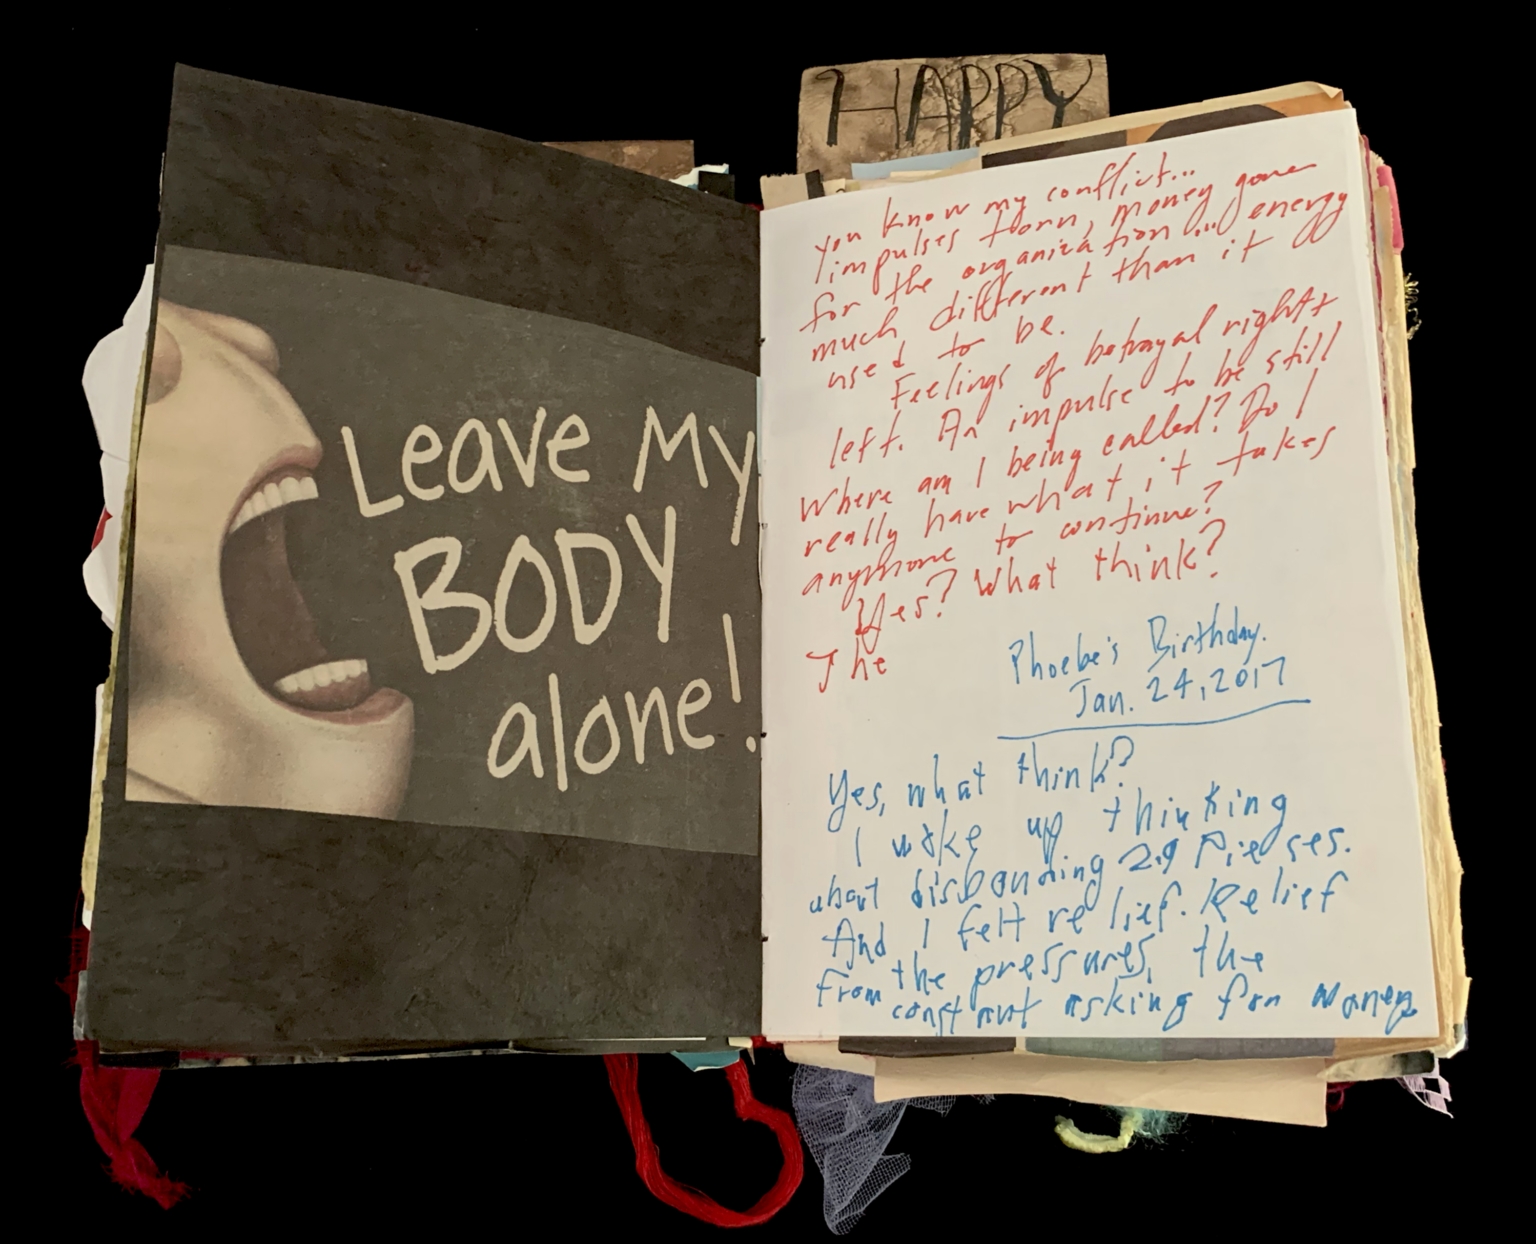 Leave My
BODY
alone!
HAPPY
you know my conflict...
impulses torn, money gone
for the organization... energy
much different than it
used to be.
Feelings of betrayal right &
left. An impulse to be still
Where am I being called? Do I
really have what it takes
anymore to continue?
Yes? What think?
The
Phoebe's Birthday.
Jan. 24, 2017
Yes, what think?
I wake up thinking
about disbanding 29 Pieeses.
And I felt relief. Relief
from the pressures, the
constant asking for money